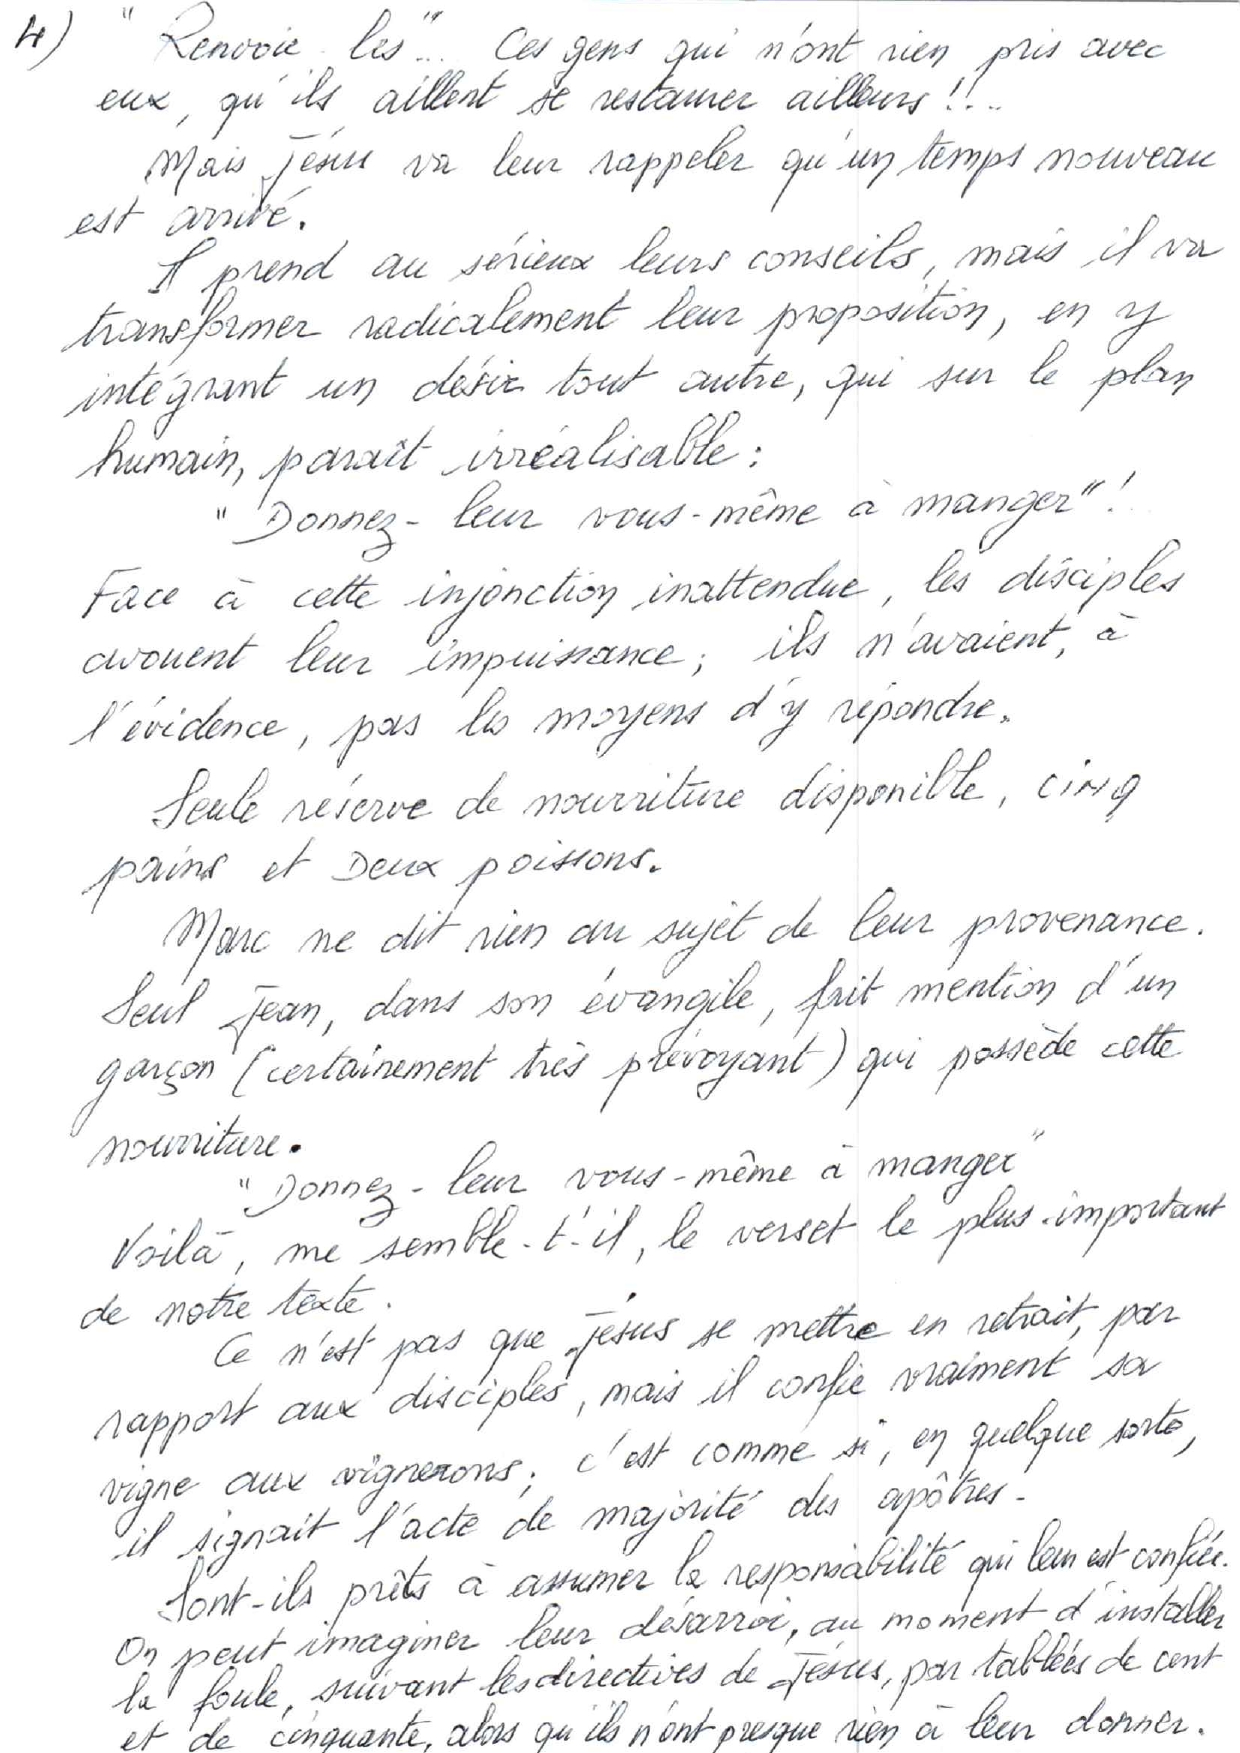 4) "Renvoie-les"... Ces gens qui n'ont rien pris avec
eux, qu'ils aillent se restaurer ailleurs !!..
Mais Jésus va leur rappeler qu'un temps nouveau
est arrivé.
Il prend au sérieux leurs conseils, mais il va
transformer radicalement leur proposition, en y
intégrant un désir tout autre, qui sur le plan
humain, paraît irréalisable :
"Donnez-leur vous-même à manger" !
Face à cette injonction inattendue, les disciples
avouent leur impuissance ; ils n'avaient, à
l'évidence, pas les moyens d'y répondre.
Seule réserve de nourriture disponible, cinq
pains et Deux poissons.
Marc ne dit rien au sujet de leur provenance.
Seul Jean, dans son évangile, fait mention d'un
garçon (certainement très prévoyant) qui possède cette
nourriture.
"Donnez-leur vous-même à manger"
Voilà, me semble-t'-il, le verset le plus important
de notre texte.
Ce n'est pas que Jésus se mettre en retrait, par
rapport aux disciples, mais il confie vraiment sa
vigne aux vignerons ; c'est comme si, en quelque sorte,
il signait l'acte de majorité des apôtres.
Sont-ils prêts à assumer la responsabilité qui leur est confiée.
On peut imaginer leur désarroi, au moment d'installer
la foule, suivant les directives de Jésus, par tablées de cent
et de cinquante, alors qu'ils n'ont presque rien à leur donner.